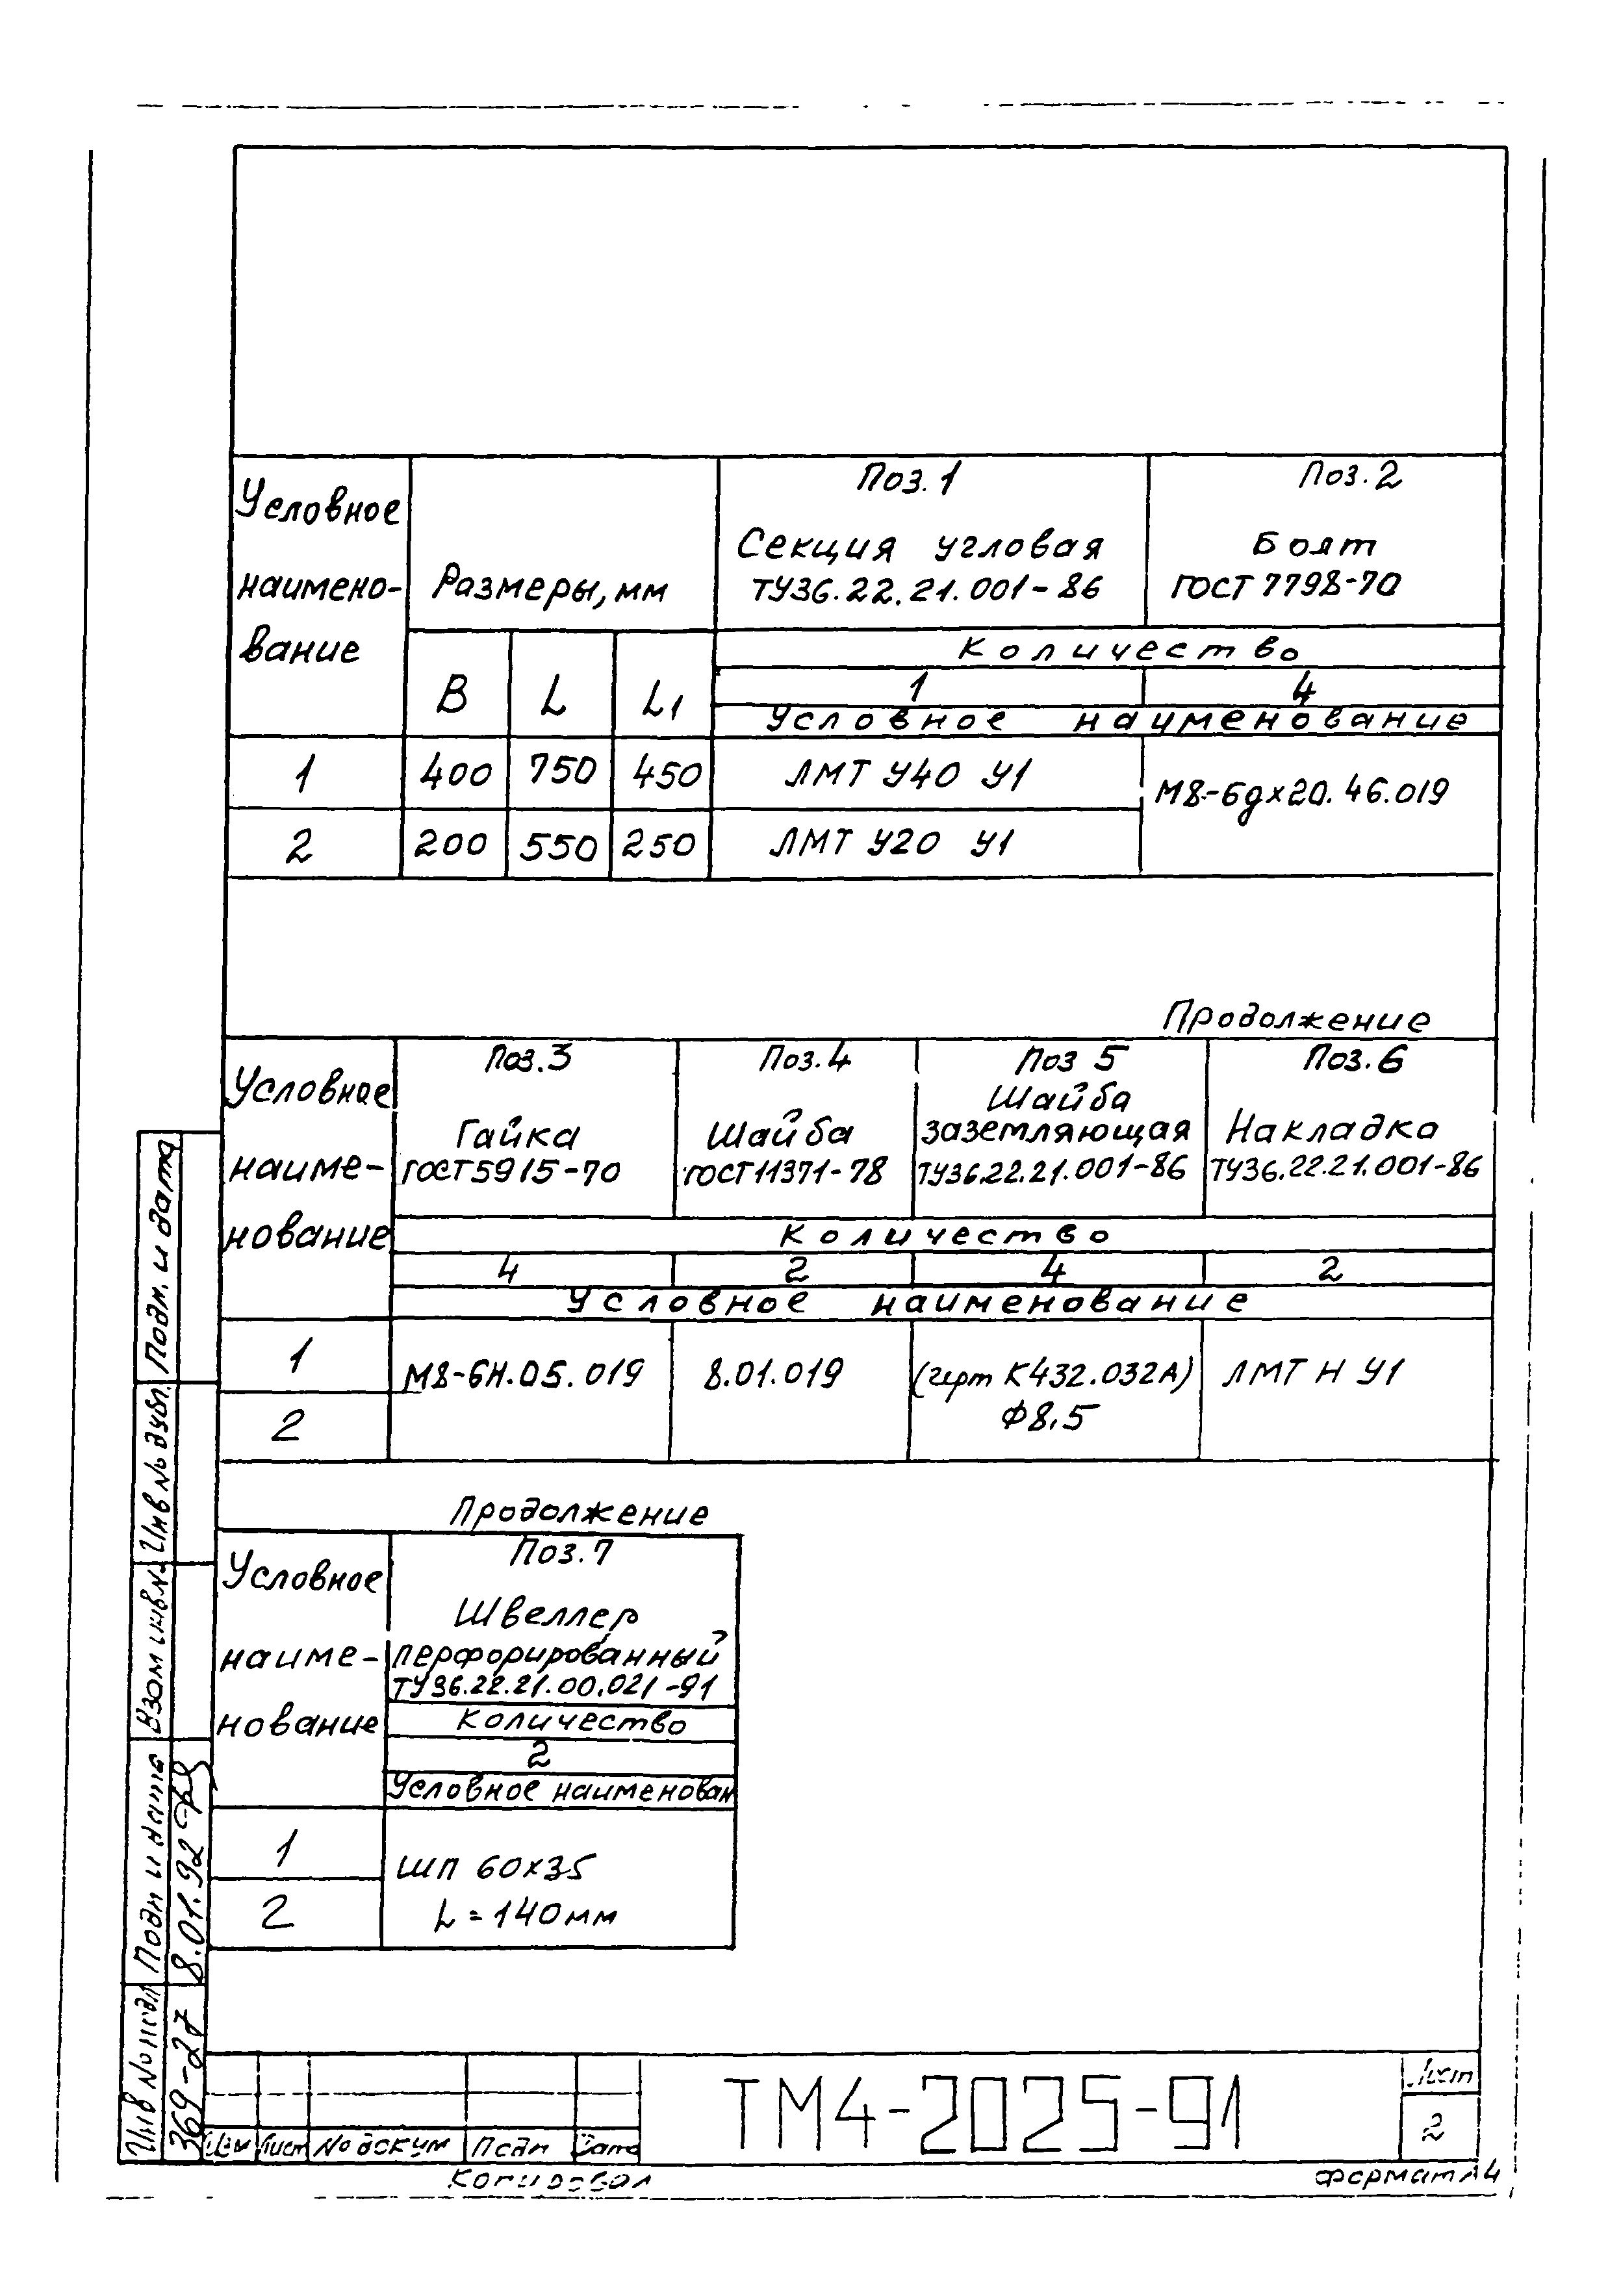 Поз.1 Поз.2
Условное
Секция угловая Болт
наимено- Размеры, мм ТУ36.22.21.001-86 ГОСТ 7798-70
вание Количество
В L L1 1 4
Условное наименование
1 400 750 450 ЛМТ У40 У1 М8-6gх20.46.019
2 200 550 250 ЛМТ У20 У1
Продолжение
Поз.3 Поз.4 Поз 5 Поз.6
Условное Шайба
Гайка Шайба заземляющая Накладка
наиме- ГОСТ5915-70 ГОСТ11371-78 ТУ36.22.21.001-86 ТУ36.22.21.001-86
нование Количество
4 2 4 2
Условное наименование
1 М8-6Н.05.019 8.01.019 (черт К432.032А) ЛМТ Н У1
2 Ф8,5
Продолжение
Поз.7
Условное
Швеллер
наиме- перфорированный
ТУ36.22.21.00.021-91
нование Количество
2
Условное наименован
1 ШП 60х35
2 L=140мм
Подп. и дата
Инв № дубл.
Взам инв№
Подп и дата 8.01.92
Инв № подл 369-27
Изм Лист № докум Подп Дата
ТМ4-2025-91
Лист
2
Копировал формат А4